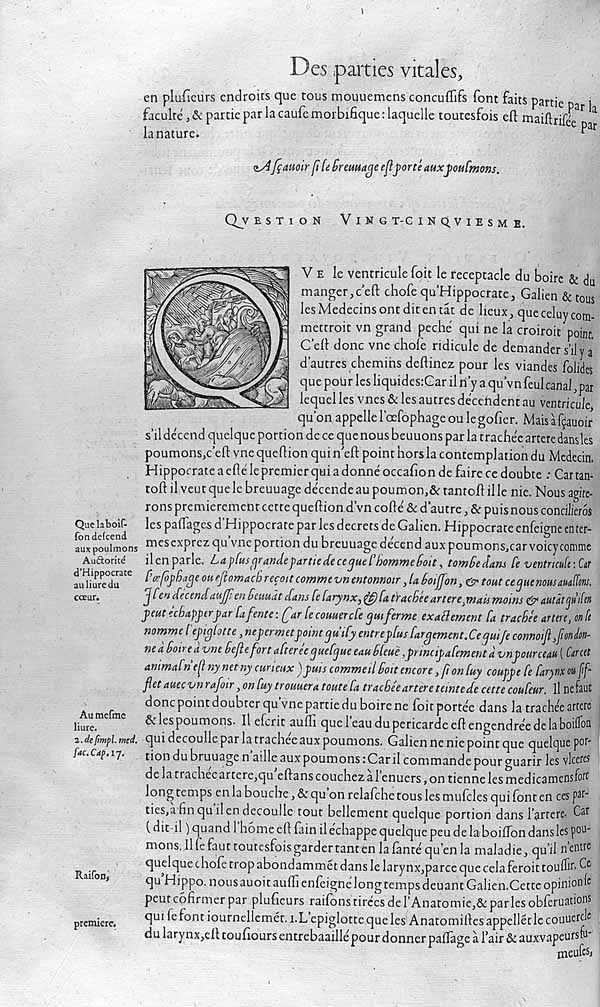 Des parties vitales,
en pluſieurs endroits que tous mouuemens concuſſifs ſont faits partie par la
faculté, & partie par la cauſe morbifique: laquelle toutesfois eſt maiſtriſée par
la nature.
A ſçauoir ſi le breuuage eſt porté aux poulmons.
QVESTION VINGT-CINQVIESME.
QVE le ventricule ſoit le receptacle du boire & du
manger, c'eſt choſe qu'Hippocrate, Galien & tous
les Medecins ont dit en tāt de lieux, que celuy com-
mettroit vn grand peché qui ne la croiroit point.
C'eſt donc vne choſe ridicule de demander s'il y a
d'autres chemins deſtinez pour les viandes ſolides
que pour les liquides: Car il n'y a qu'vn ſeul canal, par
lequel les vnes & les autres décendent au ventricule,
qu'on appelle l'œſophage ou le goſier. Mais à ſçauoir
s'il décend quelque portion de ce que nous beuuons par la trachée artere dans les
poumons, c'eſt vne queſtion qui n'eſt point hors la contemplation du Medecin.
Hippocrate a eſté le premier qui a donné occaſion de faire ce doubte: Car tan-
toſt il veut que le breuuage décende au poumon, & tantoſt il le nie. Nous agite-
rons premierement cette queſtion d'vn coſté & d'autre, & puis nous concilierōs
les paſſages d'Hippocrate par les decrets de Galien. Hippocrate enſeigne en ter-
mes exprez qu'vne portion du breuuage décend aux poumons, car voicy comme
il en parle. La plus grande partie de ce que l'homme boit, tombe dans le ventricule: Car
l'œſophage ou eſtomach reçoit comme vn entonnoir, la boiſſon, & tout ce que nous auallons.
Il en décend auſſi en beuuāt dans le larynx, & la trachée artere, mais moins & autāt qu'il en
peut échapper par la fente: Car le couuercle qui ferme exactement la trachée artere, on le
nomme l'epiglotte, ne permet point qu'il y entre plus largement. Ce qui ſe connoiſt, ſi on don-
ne à boire à vne beſte fort alterée quelque eau bleuë, principalement à vn pourceau (Car cet
animal n'eſt ny net ny curieux) puis comme il boit encore, ſi on luy couppe le larynx ou ſif-
flet auec vn raſoir, on luy trouuera toute la trachée artere teinte de cette couleur. Il ne faut
donc point doubter qu'vne partie du boire ne ſoit portée dans la trachée artere
& les poumons. Il eſcrit auſſi que l'eau du pericarde eſt engendrée de la boiſſon
qui decoulle par la trachée aux poumons. Galien ne nie point que quelque por-
tion du bruuage n'aille aux poumons: Car il commande pour guarir les vlceres
de la trachée artere, qu'eſtans couchez à l'enuers, on tienne les medicamens fort
long temps en la bouche, & qu'on relaſche tous les muſcles qui ſont en ces par-
ties, a fin qu'il en decoulle tout bellement quelque portion dans l'artere. Car
(dit-il) quand l'hōme eſt ſain il échappe quelque peu de la boiſſon dans les pou-
mons. Il ſe faut toutesfois garder tant en la ſanté qu'en la maladie, qu'il n'entre
quelque choſe trop abondammēt dans le larynx, parce que cela feroit touſſir. Ce
qu'Hippo. nous auoit auſſi enſeigné long temps deuant Galien. Cette opinion ſe
peut cōfirmer par pluſieurs raiſons tirées de l'Anatomie, & par les obſeruations
qui ſe font iournellemēt. 1. L'epiglotte que les Anatomiſtes appellēt le couuercle
du larynx, eſt touſiours entrebaaillé pour donner paſſage à l'air & aux vapeurs fu-
meuſes,
Que la boiſ-
ſon deſcend
aux poulmons
Auctorité
d'Hippocrate
au liure du
cœur.
Au meſme
liure.
2. de ſimpl. med.
fac. Cap. 17.
Raiſon,
premiere.